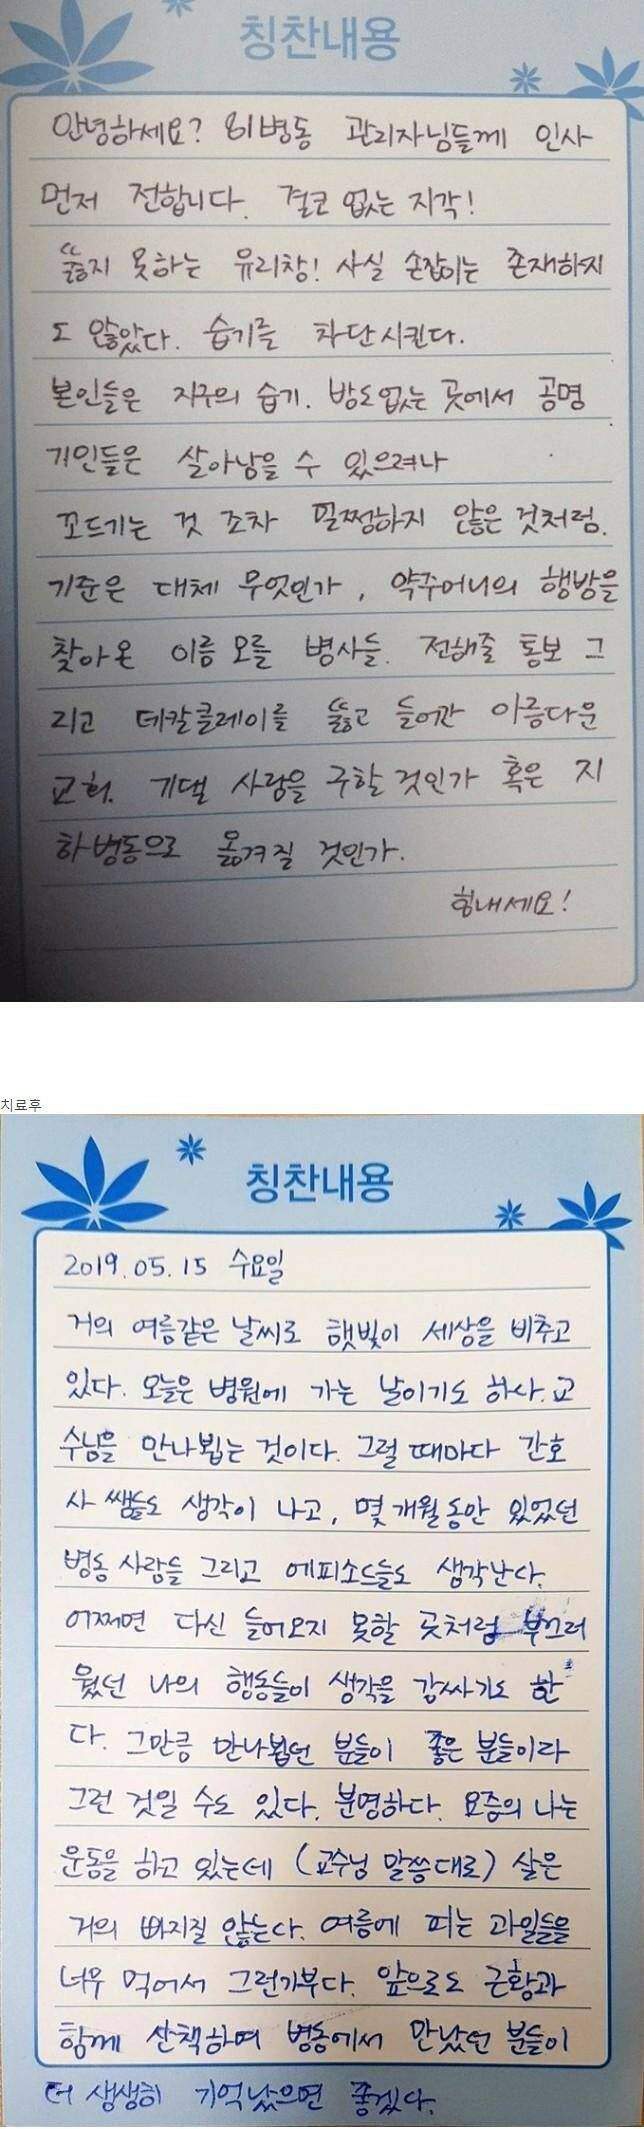 칭찬내용
안녕하세요? 81병동 관리자님들께 인사
먼저 전합니다. 결코 없는 지각!
"뚫지 못하는 유리창! 사실 손잡이는 존재하지
도 않았다. 습기를 차단시킨다.
본인들은 지구의 습기. 방도없는 곳에서 공명
기인들은 살아남을 수 있으려나
꼬드기는 것 조차 멀쩡하지 않은 것처럼.
기준은 대체 무엇인가, 약주머니의 행방을
찾아온 이름 모를 병사들. 전해줄 통보 그
리고 데칼클레이를 뚫고 들어간 아름다운
교회. 기댈 사랑을 구할 것인가 혹은 지
하병동으로 옮겨질 것인가.
힘내세요!
치료후
칭찬내용
2019.05.15 수요일
거의 여름같은 날씨로 햇빛이 세상을 비추고
있다. 오늘은 병원에 가는 날이기도 하나. 교
수님을 만나뵙는 것이다. 그럴 때마다 간호
사 쌤들도 생각이 나고, 몇 개월 동안 있었던
병동 사람들 그리고 에피소드들도 생각난다.
어쩌면 다신 들어오지 못할 곳처럼 부끄러
웠던 나의 행동들이 생각을 감싸기도 한
다. 그만큼 만나뵙던 분들이 좋은 분들이라
그런 것일 수도 있다. 분명하다. 요즘의 나는
운동을 하고 있는데 (교수님 말씀대로) 살은
거의 빠지질 않는다. 여름에 피는 과일들을
너무 먹어서 그런가부다. 앞으로도 근황과
함께 산책하며 병동에서 만났던 분들이
더 생생히 기억났으면 좋겠다.